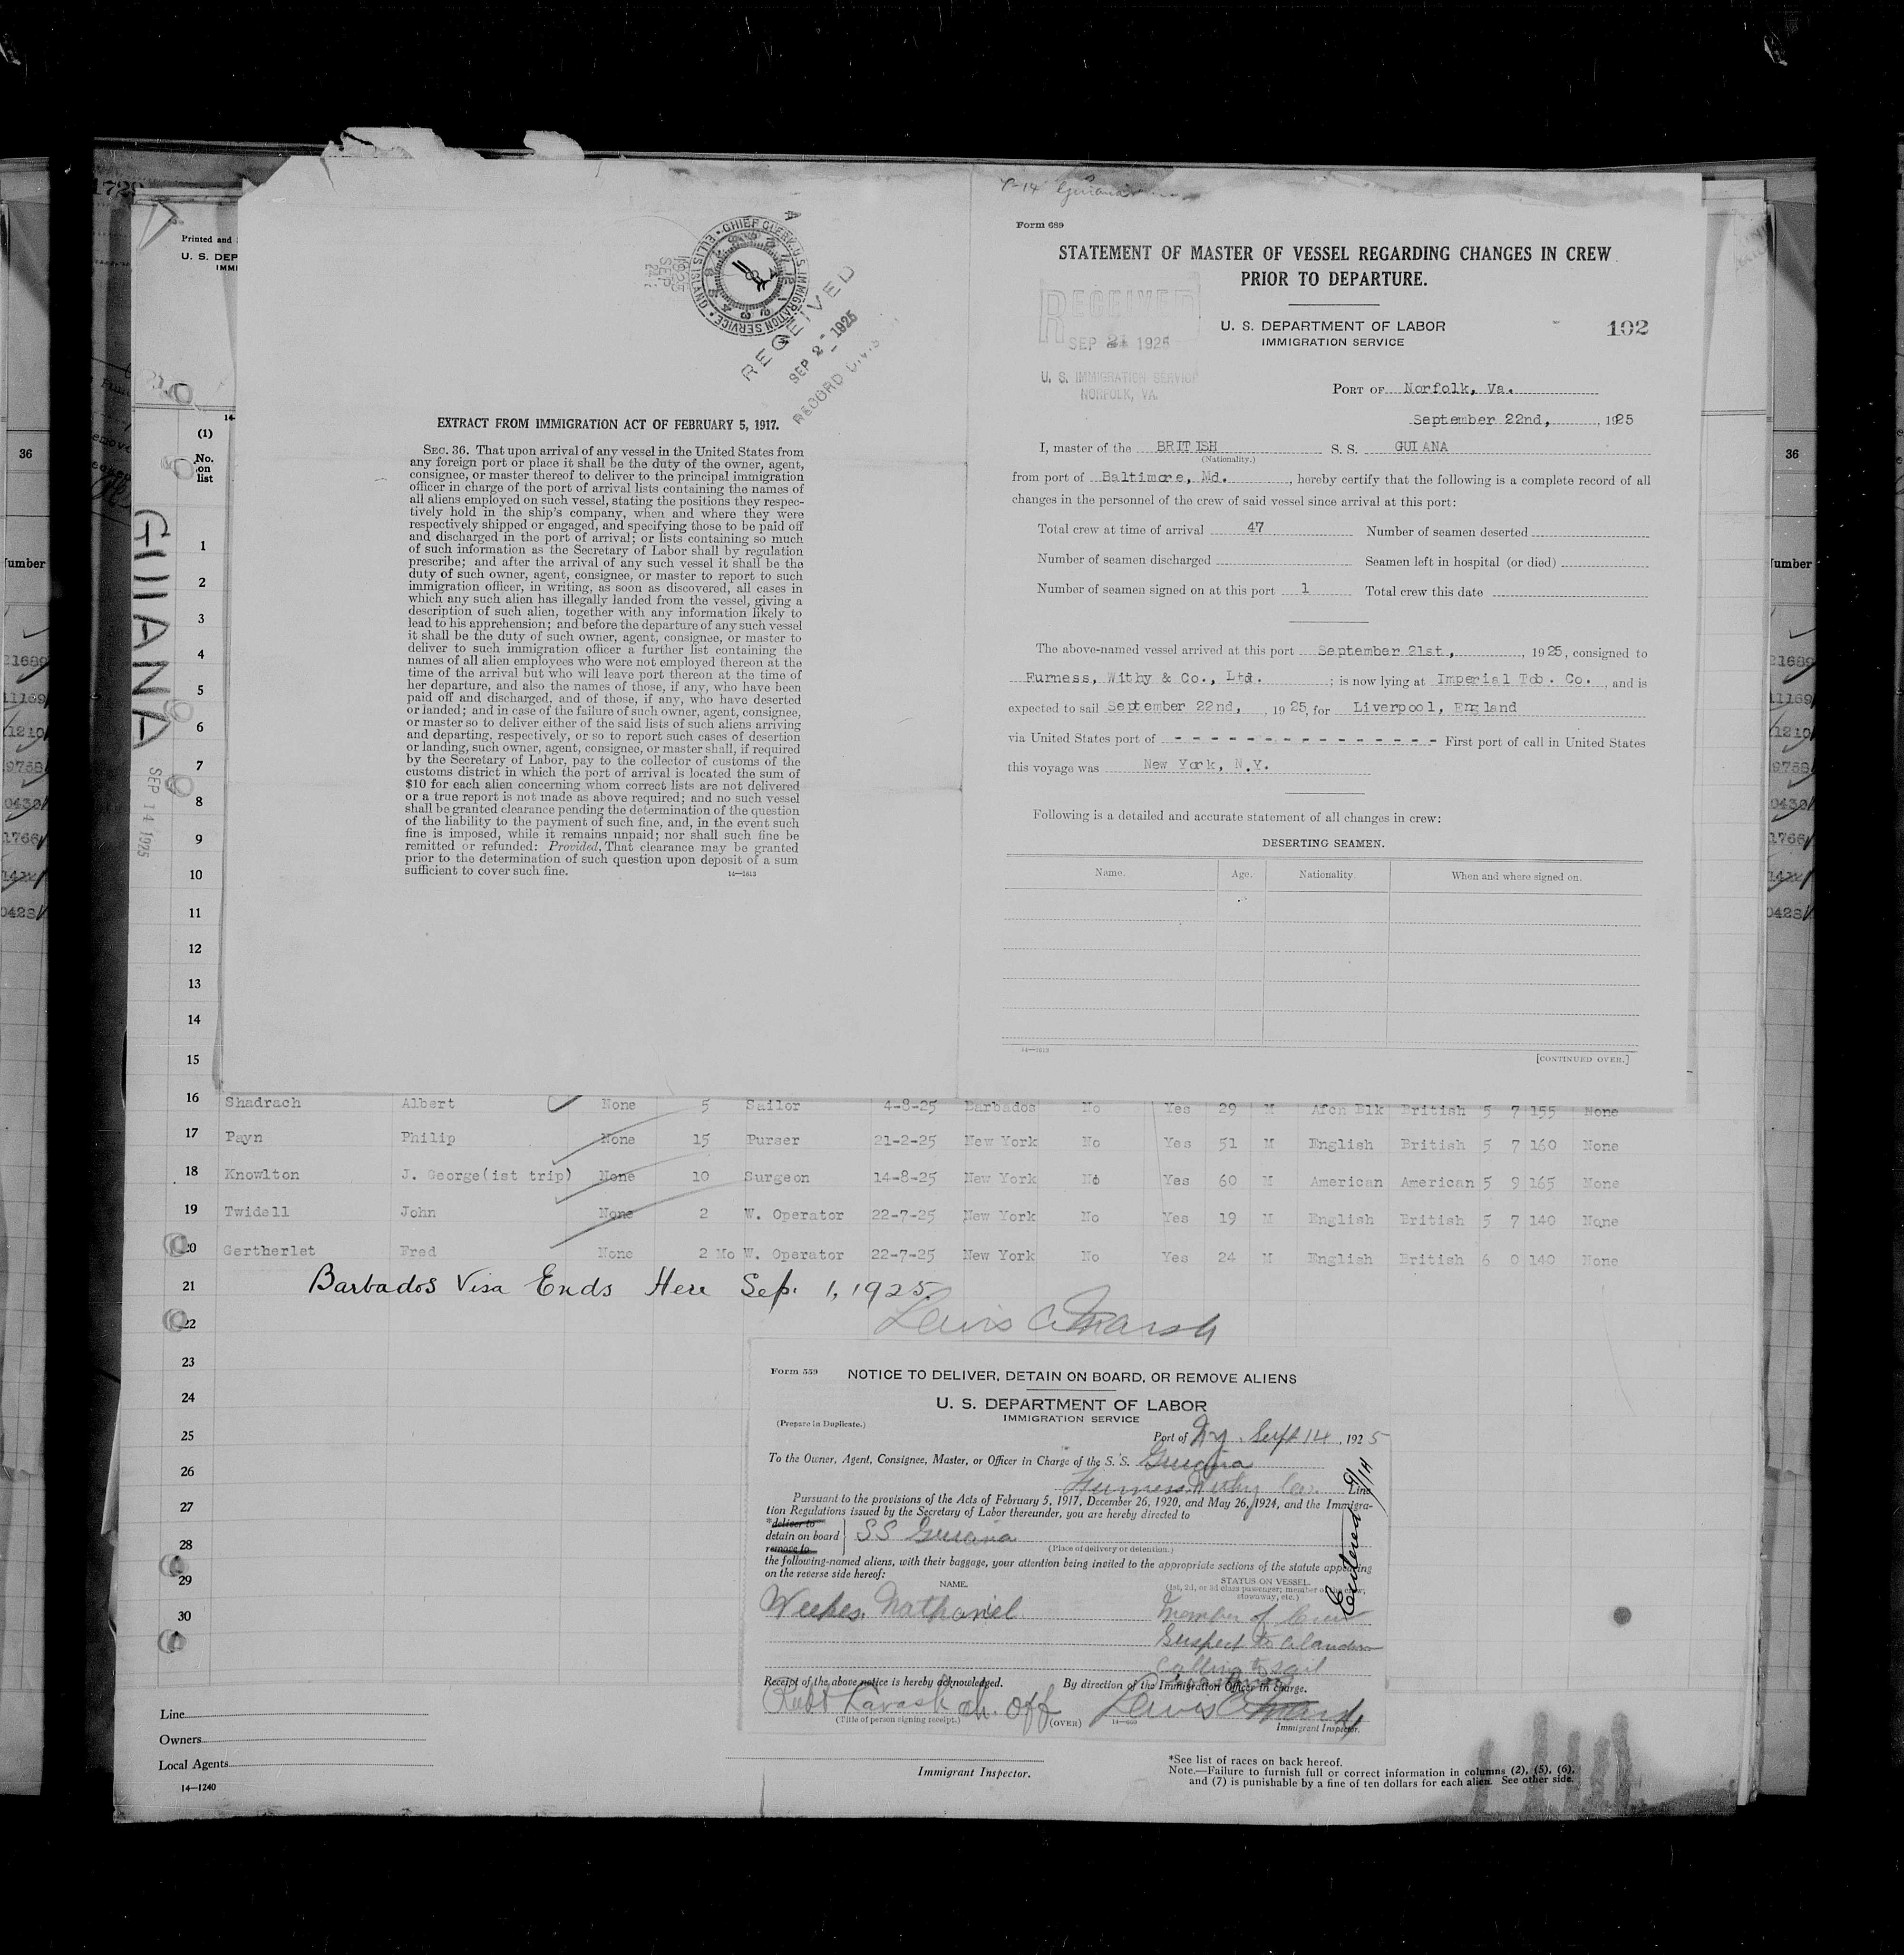 1729
Printed and
U. S. DEP
IMMI
14-
(1)
No.
on
list
GUIANA
SEP 14 1925
CHIEF CLERK, U.S. IMMIGRATION SERVICE • ELLIS ISLAND •
RECEIVED
SEP 2 1925
RECORD DIVIS
EXTRACT FROM IMMIGRATION ACT OF FEBRUARY 5, 1917.
SEC. 36. That upon arrival of any vessel in the United States from
any foreign port or place it shall be the duty of the owner, agent,
consignee, or master thereof to deliver to the principal immigration
officer in charge of the port of arrival lists containing the names of
all aliens employed on such vessel, stating the positions they respec-
tively hold in the ship's company, when and where they were
respectively shipped or engaged, and specifying those to be paid off
and discharged in the port of arrival; or lists containing so much
of such information as the Secretary of Labor shall by regulation
prescribe; and after the arrival of any such vessel it shall be the
duty of such owner, agent, consignee, or master to report to such
immigration officer, in writing, as soon as discovered, all cases in
which any such alien has illegally landed from the vessel, giving a
description of such alien, together with any information likely to
lead to his apprehension; and before the departure of any such vessel
it shall be the duty of such owner, agent, consignee, or master to
deliver to such immigration officer a further list containing the
names of all alien employees who were not employed thereon at the
time of the arrival but who will leave port thereon at the time of
her departure, and also the names of those, if any, who have been
paid off and discharged, and of those, if any, who have deserted
or landed; and in case of the failure of such owner, agent, consignee,
or master so to deliver either of the said lists of such aliens arriving
and departing, respectively, or so to report such cases of desertion
or landing, such owner, agent, consignee, or master shall, if required
by the Secretary of Labor, pay to the collector of customs of the
customs district in which the port of arrival is located the sum of
$10 for each alien concerning whom correct lists are not delivered
or a true report is not made as above required; and no such vessel
shall be granted clearance pending the determination of the question
of the liability to the payment of such fine, and, in the event such
fine is imposed, while it remains unpaid; nor shall such fine be
remitted or refunded: Provided, That clearance may be granted
prior to the determination of such question upon deposit of a sum
sufficient to cover such fine.
14—1613
Guiana
Form 689
STATEMENT OF MASTER OF VESSEL REGARDING CHANGES IN CREW
PRIOR TO DEPARTURE.
U. S. DEPARTMENT OF LABOR
IMMIGRATION SERVICE
102
RECEIVED
SEP 21 1925
U. S. IMMIGRATION SERVICE
NORFOLK, VA.
PORT OF Norfolk, Va.
September 22nd, , 1925
I, master of the BRITISH S. S. GUIANA
(Nationality.)
from port of Baltimore, Md. , hereby certify that the following is a complete record of all
changes in the personnel of the crew of said vessel since arrival at this port:
Total crew at time of arrival 47 Number of seamen deserted
Number of seamen discharged Seamen left in hospital (or died)
Number of seamen signed on at this port 1 Total crew this date
The above-named vessel arrived at this port September 21st, , 1925, consigned to
Furness, Withy & Co., Ltd. ; is now lying at Imperial Tob. Co. , and is
expected to sail September 22nd, , 1925, for Liverpool, England
via United States port of - - - - - - - - - - - - - - - - First port of call in United States
this voyage was New York, N.Y.
Following is a detailed and accurate statement of all changes in crew:
DESERTING SEAMEN.
Name. Age. Nationality. When and where signed on.
14—1613
[CONTINUED OVER.]
36
umber
21689
11169
1210
9758
0430
1766
1424
0428
36
umber
21689
11169
1210
9758
0430
1766
1424
0428
1
2
3
4
5
6
7
8
9
10
11
12
13
14
15
16 Shadrach Albert None 5 Sailor 4-8-25 Barbados No Yes 29 M Afcn Blk British 5 7 155 None
17 Payn Philip None 15 Purser 21-2-25 New York No Yes 51 M English British 5 7 160 None
18 Knowlton J. George(ist trip) None 10 Surgeon 14-8-25 New York No Yes 60 M American American 5 9 165 None
19 Twidell John None 2 W. Operator 22-7-25 New York No Yes 19 M English British 5 7 140 None
20 Gertherlet Fred None 2 Mo W. Operator 22-7-25 New York No Yes 24 M English British 6 0 140 None
21 Barbados Visa Ends Here Sep. 1, 1925.
22 Lewis A Marsh
23
24
25
26
27
28
29
30
Form 559
NOTICE TO DELIVER, DETAIN ON BOARD, OR REMOVE ALIENS
U. S. DEPARTMENT OF LABOR
IMMIGRATION SERVICE
(Prepare in Duplicate.)
Port of Ny. Sept 14, 1925
To the Owner, Agent, Consignee, Master, or Officer in Charge of the S. S. Guiana
Furness Withy Co. Line
Pursuant to the provisions of the Acts of February 5, 1917, December 26, 1920, and May 26, 1924, and the Immigra-
tion Regulations issued by the Secretary of Labor thereunder, you are hereby directed to
*deliver to
detain on board SS Guiana
remove to
(Place of delivery or detention.)
the following-named aliens, with their baggage, your attention being invited to the appropriate sections of the statute appearing
on the reverse side hereof:
NAME.
STATUS ON VESSEL.
(1st, 2d, or 3d class passenger; member of the crew;
stowaway, etc.)
Weekes, Nathaniel
Member of Crew
Suspect to abandon
calling to sail
Entered 9/14
Receipt of the above notice is hereby acknowledged.
By direction of the Immigration Officer in charge.
Robt Ch. Off
Lewis A Marsh
(Title of person signing receipt.)
(OVER)
14—669
Immigrant Inspector.
Line
Owners
Local Agents
14—1240
Immigrant Inspector.
*See list of races on back hereof.
Note.—Failure to furnish full or correct information in columns (2), (5), (6),
and (7) is punishable by a fine of ten dollars for each alien. See other side.